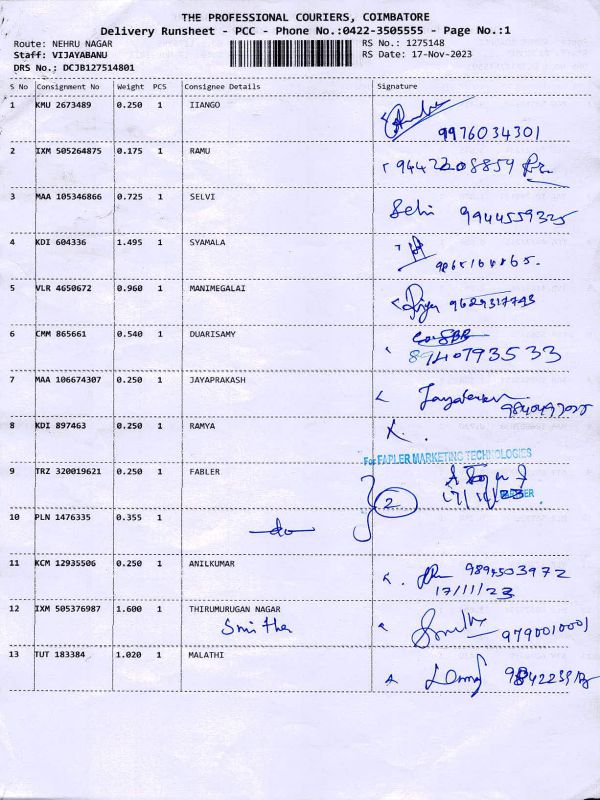 THE PROFESSIONAL COURIERS, COIMBATORE
Delivery Runsheet - PCC - Phone No.:0422-3505555 - Page No.:1
Route: NEHRU NAGAR RS No.: 1275148
Staff: VIJAYABANU RS Date: 17-Nov-2023
DRS No.: DCJB127514801
S No Consignment No Weight PCS Consignee Details Signature
1 KMU 2673489 0.250 1 IIANGO
9976034301
2 IXM 505264875 0.175 1 RAMU
9442208859
3 MAA 105346866 0.725 1 SELVI
Selvi 9944559325
4 KDI 604336 1.495 1 SYAMALA
5 VLR 4650672 0.960 1 MANIMEGALAI
9629317743
6 CMM 865661 0.540 1 DUARISAMY
8940793533
7 MAA 106674307 0.250 1 JAYAPRAKASH
8 KDI 897463 0.250 1 RAMYA
For FABLER MARKETING TECHNOLOGIES
9 TRZ 320019621 0.250 1 FABLER
2
17/11/23
10 PLN 1476335 0.355 1
do
11 KCM 12935506 0.250 1 ANILKUMAR
9894503972
17/11/23
12 IXM 505376987 1.600 1 THIRUMURUGAN NAGAR
Smitha 9790010001
13 TUT 183384 1.020 1 MALATHI